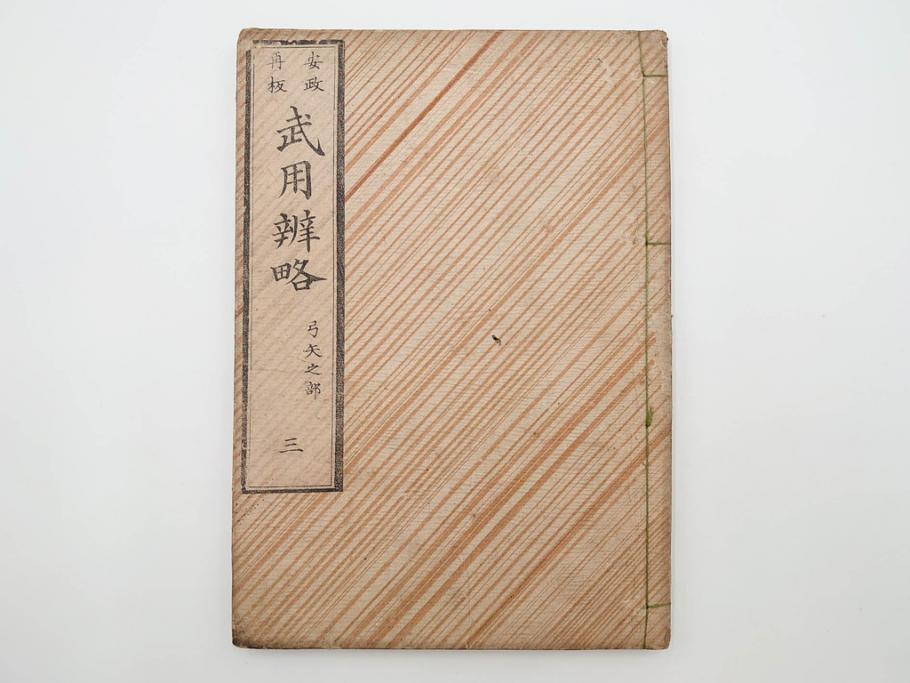 安政
再板
武用辨略
弓矢之部
三